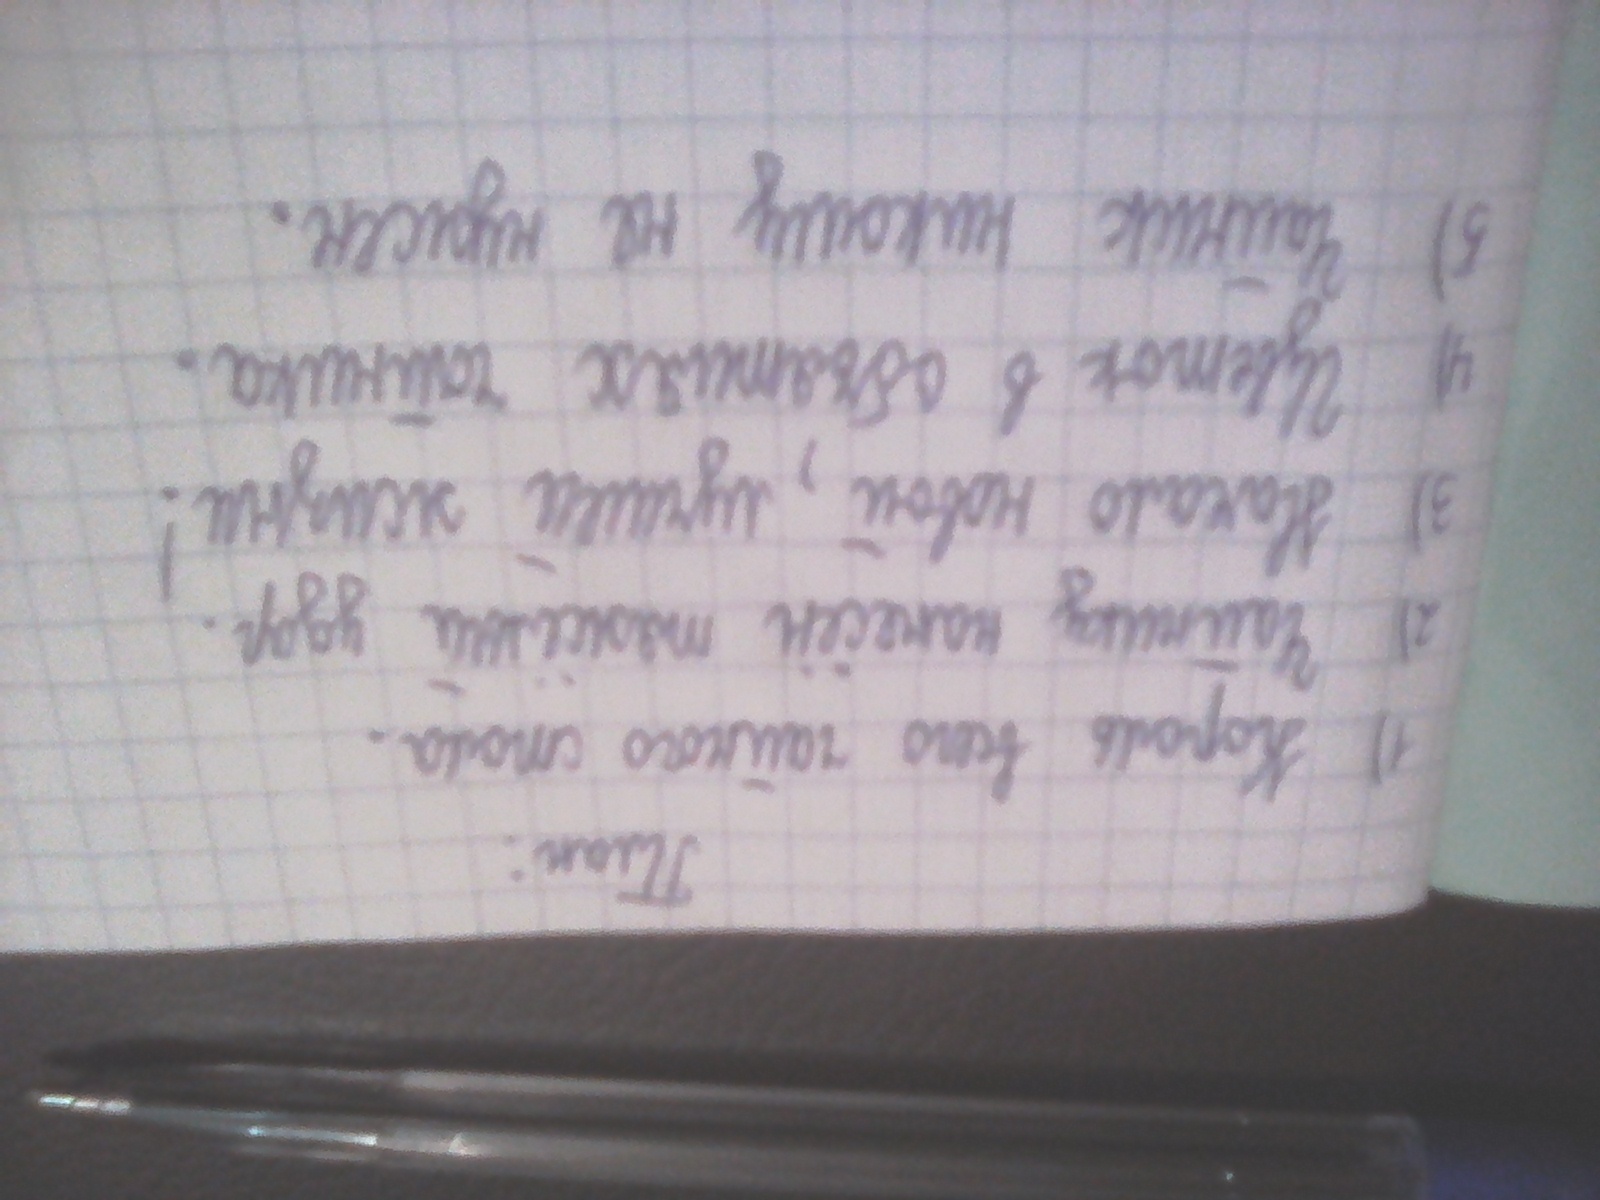 План:
1) Король всего чайного стола.
2) Чайнику нанесён тяжёлый удар.
3) Начало новой, лучшей жизни!
4) Цветок в объятиях чайника.
5) Чайник никому не нужен.